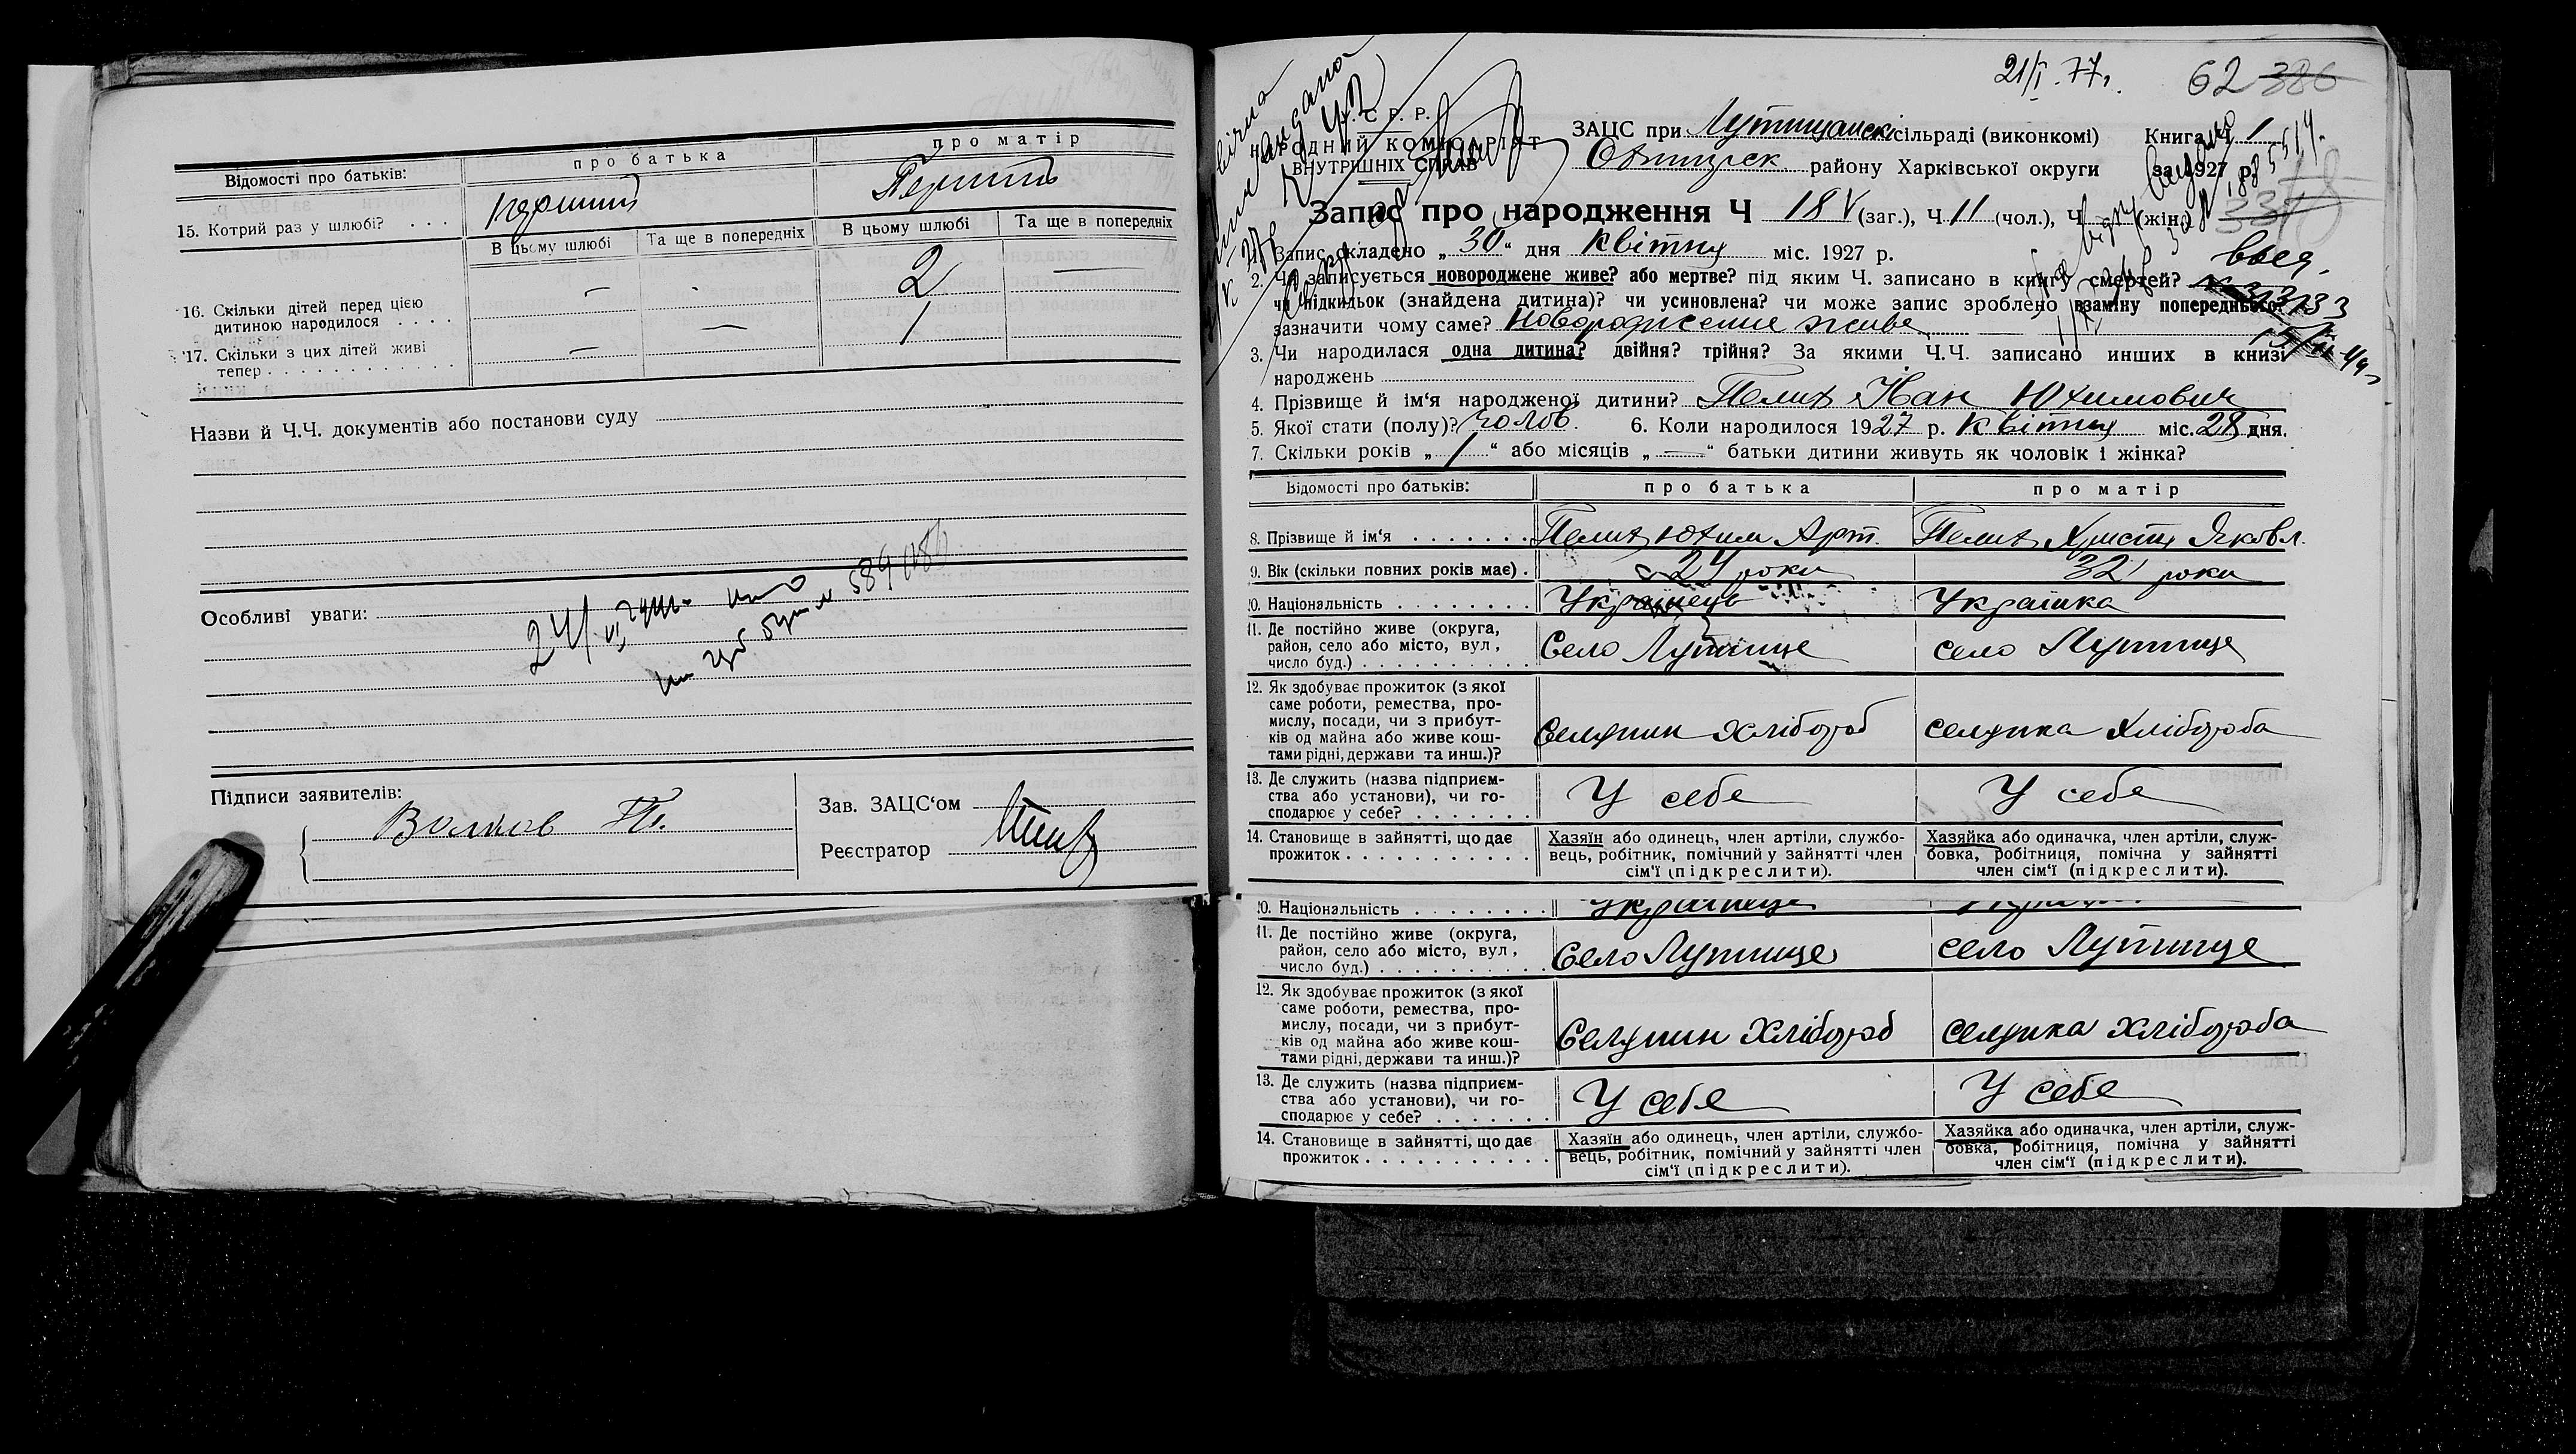 Відомості про батьків:
про батька
про матір
15. Котрий раз у шлюбі? . . .
перший
Перший
В цьому шлюбі
Та ще в попередніх
В цьому шлюбі
Та ще в попередніх
16. Скільки дітей перед цією
дитиною народилося . . . .
—
-
2
—
17. Скільки з цих дітей живі
тепер . . . . . . . . . . . .
—
—
1
Назви й Ч.Ч. документів або постанови суду
Особливі уваги:
Підписи заявителів:
Волков П.
Зав. ЗАЦС'ом
Реєстратор
21/I.77г.
62 386
С. Р. Р.
ОДНИЙ КОМІСАРІЯТ
ВНУТРІШНІХ СПРАВ
ЗАЦС при Лутищанськ сільраді (виконкомі)
Книга ч. 1
району Харківської округи
за 1927 р.
Запис про народження Ч 18 (заг.), Ч 11 (чол.), Ч (жін.)
1. Запис складено „30" дня Квітня міс. 1927 р.
2. Чи записується новороджене живе? або мертве? під яким Ч. записано в книгу смертей?
чи підкидьок (знайдена дитина)? чи усиновлена? чи може запис зроблено взаміну попереднього?
зазначити чому саме? Новорожденне живе
3. Чи народилася одна дитина? двійня? трійня? За якими Ч.Ч. записано инших в книзі
народжень
4. Прізвище й ім'я народженої дитини? Пелих Іван Юхимович
5. Якої стати (полу)? чолов. 6. Коли народилося 1927 р. Квітня міс. 28 дня.
7. Скільки років „ 1 " або місяців „ — " батьки дитини живуть як чоловік і жінка?
Відомості про батьків:
про батька
про матір
8. Прізвище й ім'я . . . . . . .
Пелих Юхим Арт.
Пелих Христя Яковл.
9. Вік (скільки повних років має) .
24 роки
32 роки
10. Національність . . . . . . . .
Українець
Українка
11. Де постійно живе (округа,
район, село або місто, вул,
число буд.) . . . . . . . . . . .
Село Лутище
село Лутище
12. Як здобуває прожиток (з якої
саме роботи, ремества, про-
мислу, посади, чи з прибут-
ків од майна або живе кош-
тами рідні, держави та инш.)?
Селянин Хлібороб
селянка Хлібороба
13. Де служить (назва підприєм-
ства або установи), чи го-
сподарює у себе? . . . . . . .
У себе
У себе
14. Становище в зайнятті, що дає
прожиток . . . . . . . . . . .
Хазяїн або одинець, член артіли, службо-
вець, робітник, помічний у зайнятті член
сім'ї (підкреслити).
Хазяйка або одиначка, член артіли, служ-
бовка, робітниця, помічна у зайнятті
член сім'ї (підкреслити).
10. Національність . . . . . . . .
11. Де постійно живе (округа,
район, село або місто, вул,
число буд.) . . . . . . . . . . .
Село Лутище
село Лутище
12. Як здобуває прожиток (з якої
саме роботи, ремества, про-
мислу, посади, чи з прибут-
ків од майна або живе кош-
тами рідні, держави та инш.)?
Селянин Хлібороб
селянка хлібороба
13. Де служить (назва підприєм-
ства або установи), чи го-
сподарює у себе? . . . . . . .
У себе
У себе
14. Становище в зайнятті, що дає
прожиток . . . . . . . . . . .
Хазяїн або одинець, член артіли, службо-
вець, робітник, помічний у зайнятті член
сім'ї (підкреслити).
Хазяйка або одиначка, член артіли, служ-
бовка, робітниця, помічна у зайнятті
член сім'ї (підкреслити).